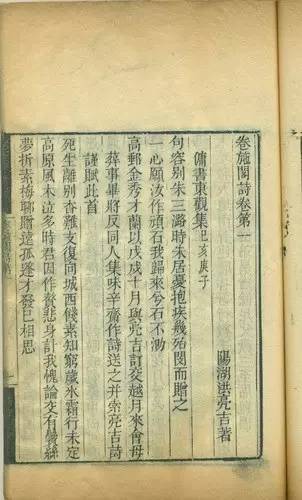 卷施閣詩卷第一
陽湖洪亮吉著
傭書東觀集己亥庚子
句容別朱三潞時朱居憂抱疾幾殆閔而贈之
一心願汝作頑石我歸來兮石不泐
高郵金秀才蘭以戊戌十月與亮吉訂交越月來會母
葬事畢將反同人集味辛齋作詩送之并索亮吉詩
謹賦此首
死生離別杳難支復向城西餞素知窮歲氷霜行未定
高原風木泣多時君因作贅悲身計我愧論交有鬢絲
夢折素梅聊贈遠孤蓬才發已相思